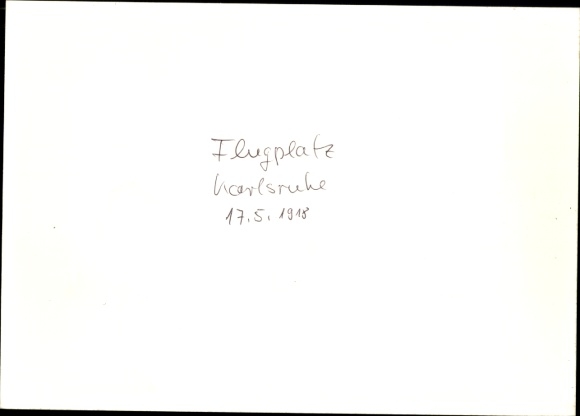 Flugplatz
Karlsruhe
17.5.1918